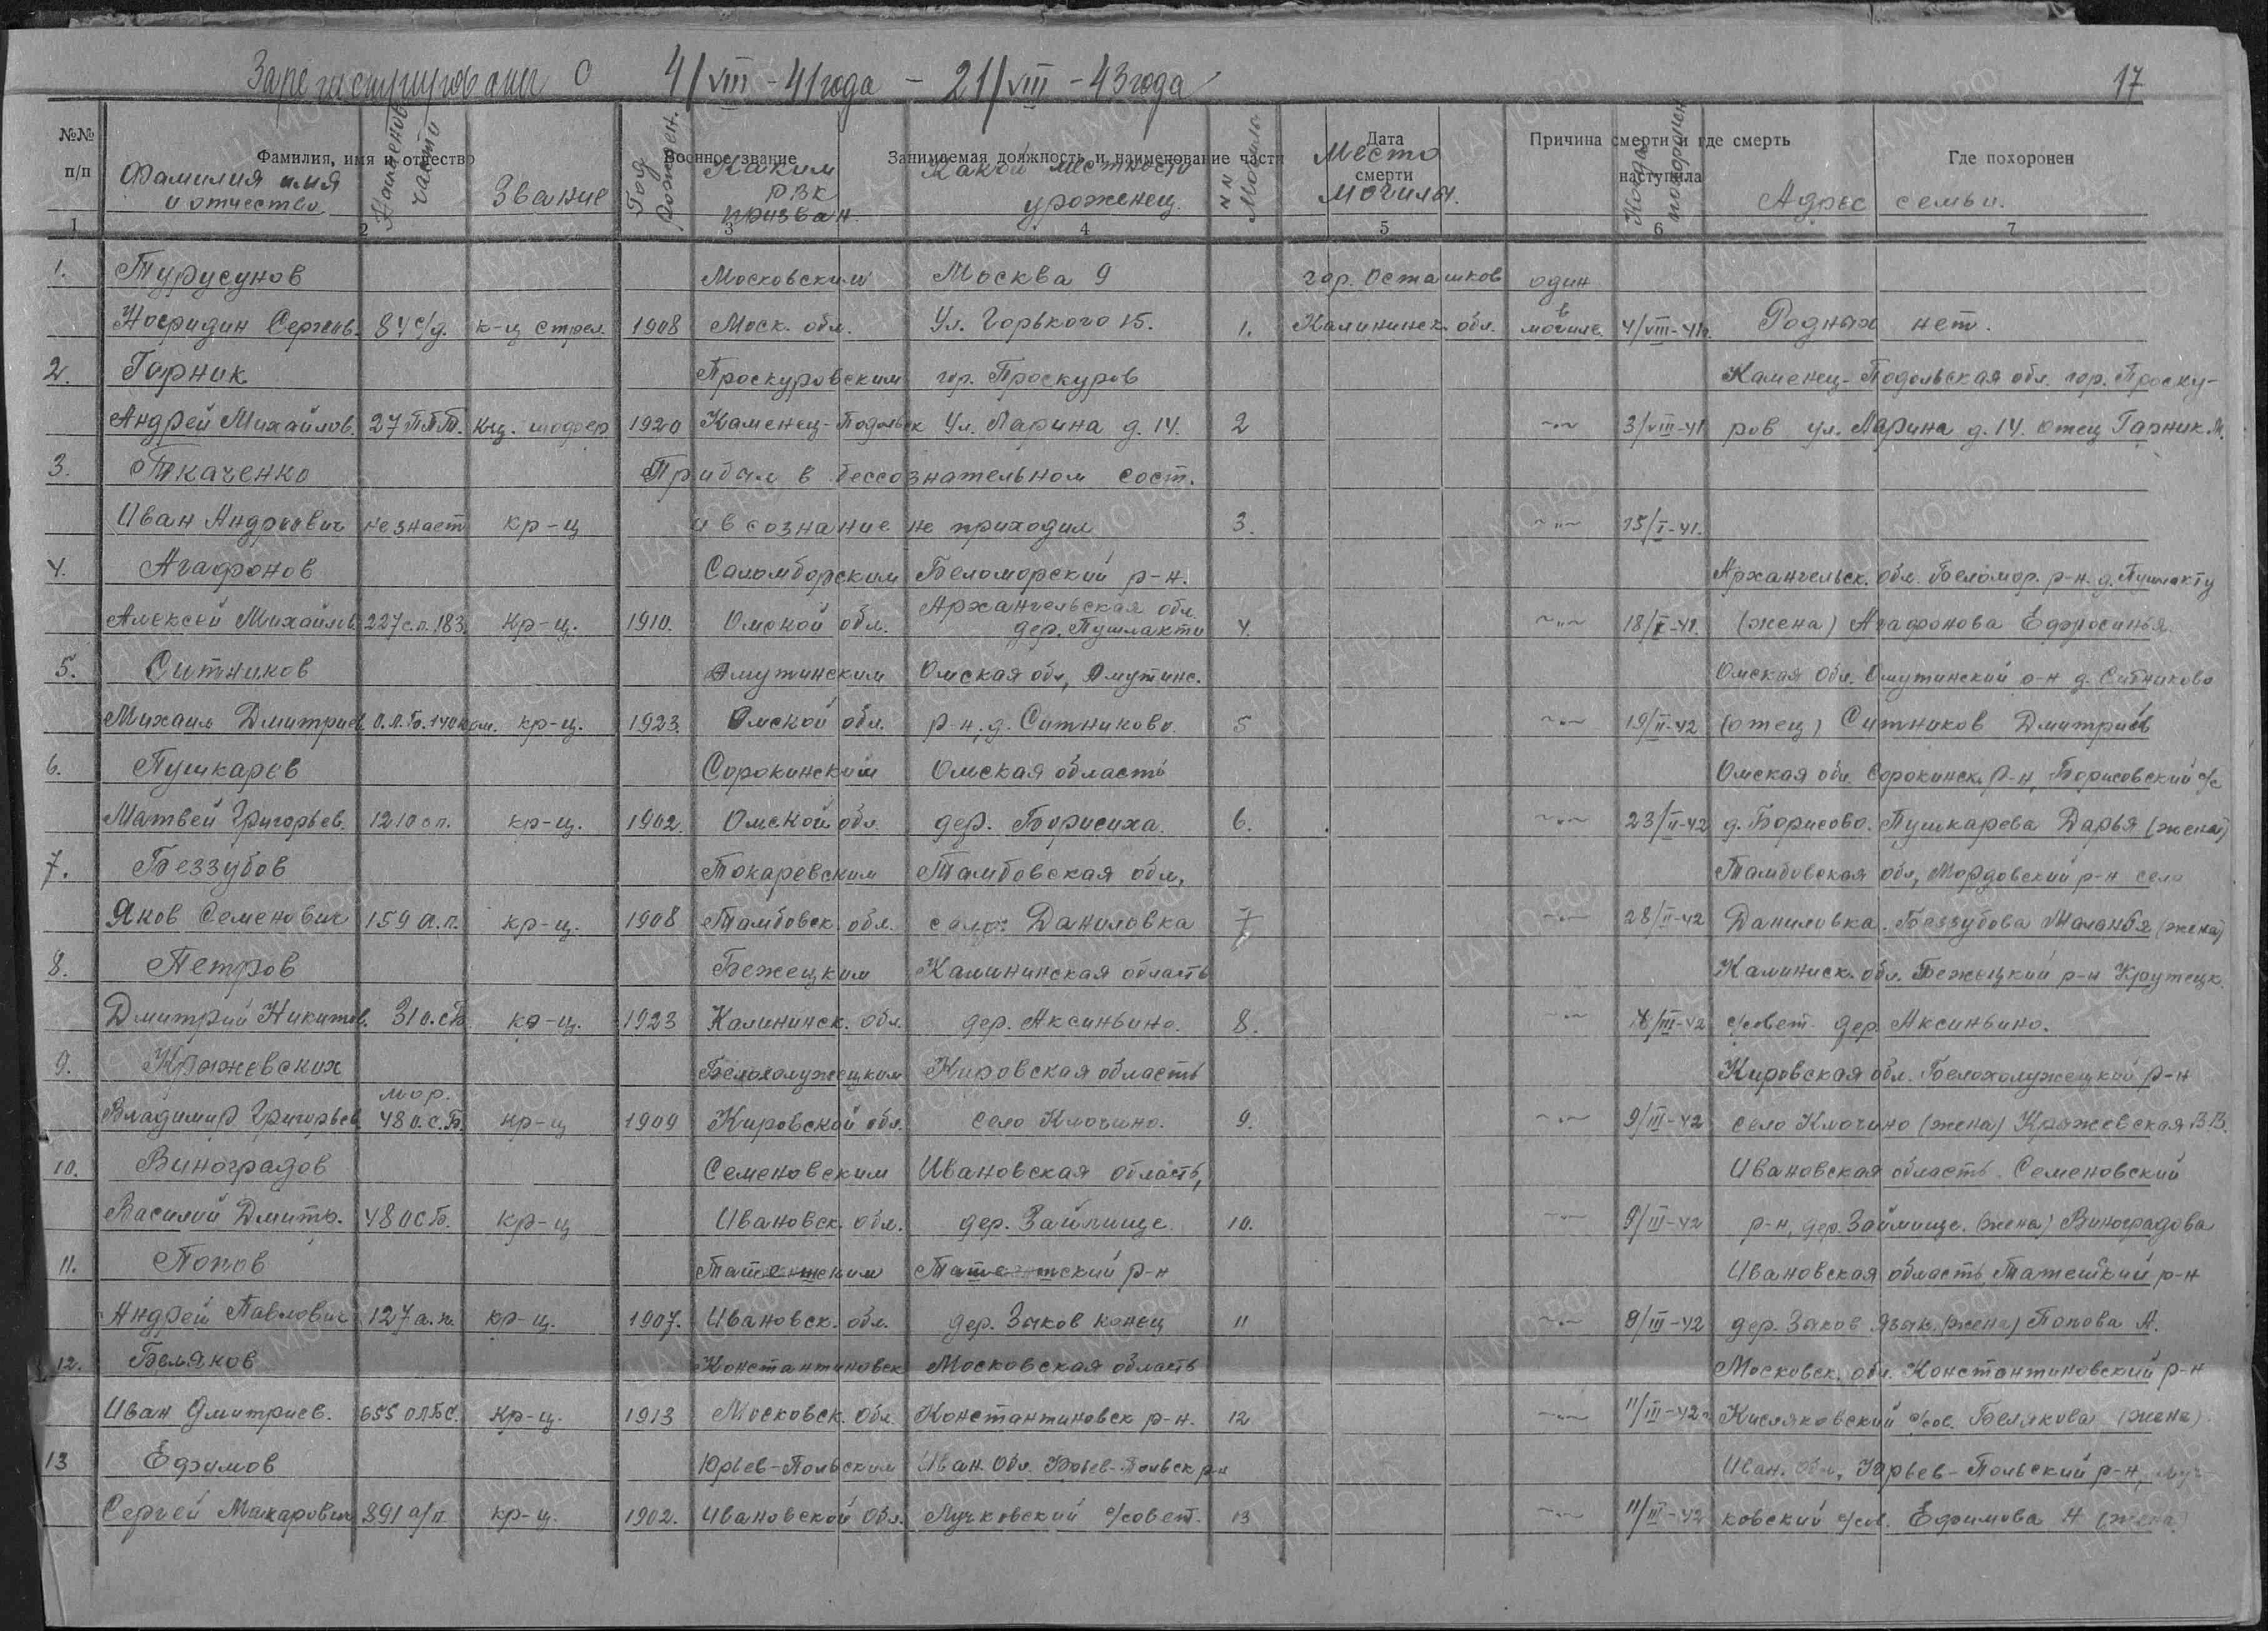 Зарегистрированы с 4/VIII-41 года - 21/VIII-43 года
17
№№ п/п
Фамилия, имя и отчество
Военное звание
Занимаемая должность и наименование части
Дата смерти
Причина смерти и где смерть наступила
Где похоронен
Фамилия имя и отчество
Наименов части
Звание
Год рожден.
Каким РВК призван.
Какой местности уроженец.
NN Могилы
Место могилы.
Когда похоронен
Адрес семьи.
1 2 3 4 5 6 7
1. Турусунов Московским Москва 9 гор. Осташков один
84 с/д. к-ц стрел. 1908 Моск. обл. Ул. Горького 15. 1. Калининск. обл. в могиле 4/VIII-41г. Родных нет.
2. Горник Проскуровским гор. Проскуров Каменец-Подольская обл. гор. Проску-
Андрей Михайлов. 27 ППТ. кц. шофер 1920 Каменец-Подольск Ул. Ларина д. 14. 2 -"- 3/VIII-41 ров ул. Ларина д. 14. отец Гарник М.
3. Ткаченко Прибыл в бессознательном сост.
Иван Андреевич не знает кр-ц и в сознание не приходил 3. -"- 15/I-41.
4. Агафонов Саломборским Беломорский р-н. Архангельск. обл. Беломор. р-н. д. Пушлакту
Алексей Михайлов 227 с.п. 183 кр-ц. 1910. Омской обл. Архангельская обл. дер. Пушлакти 4. -"- (жена) Агафонова Ефросинья.
5. Ситников Омутинским Омская обл, Омутинс. Омская обл. Омутинский р-н д. Ситниково
Михаил Дмитриев О.Л.Б. 140 ком. кр-ц. 1923. Омской обл. р-н, д. Ситниково. 5 -"- 19/II-42 (отец) Ситников Дмитрий
6. Пушкарев Сорокинским Омская область Омская обл. Сорокинск. р-н, Борисовский с/с
Матвей Григорьев. 1210 сп. кр-ц. 1902. Омской обл. дер. Борисиха. 6. -"- 23/II-42 д. Борисово. Пушкарева Дарья (жена)
7. Беззубов Токаревским Тамбовская обл, Тамбовская обл, Мордовский р-н село
Яков Семенович 159 а.п. кр-ц. 1908 Тамбовск. обл. село: Даниловка 7 -"- 28/II-42 Даниловка. Беззубова (жена)
8. Петров Бежецким Калининская область Калининск. обл. Бежецкий р-н Крутецк.
Дмитрий Никитов. 31 о.сб кр-ц. 1923 Калининск. обл. дер. Аксиньино. 8. -"- с/совет дер Аксиньино.
9. Кряжевских Белохолужецким Кировская область Кировская обл. Белохолужецкий р-н
Владимир Григорьев мор. 48 о.с.б. кр-ц 1909 Кировской обл. село Ключино. 9. -"- 9/III-42 село Ключино (жена) Кряжевская В.В.
10. Виноградов Семеновским Ивановская область, Ивановская область Семеновский
Василий Дмитр. 48 ОСБ. кр-ц Ивановск. обл. дер. Займище 10. -"- 9/III-42 р-н, дер. Займище. (жена) Виноградова
11. Попов р-н Ивановская область р-н
Андрей Павлович 127 а.п. кр-ц. 1907. Ивановск. обл. дер. Зыков конец 11 -"- 9/III-42 дер. Зыков (жена) Попова А.
12. Беляков Константиновск Московская область Московск. обл. Константиновский р-н
Иван Дмитриев. 655 ОЛБС. кр-ц. 1913 Московск. обл. Константиновск р-н. 12 -"- 11/III-42г. Кисляковский с/сов. Белякова (жена)
13 Ефимов Юрьев-Польским Иван. обл. Юрьев-Польск р-н Иван. обл, Юрьев-Польский р-н, Луч
Сергей Макарович 891 а/п. кр-ц. 1902. Ивановской обл. Лучковский с/совет. 13 -"- 11/III-42 ковский с/сов. Ефимова Н (жена)